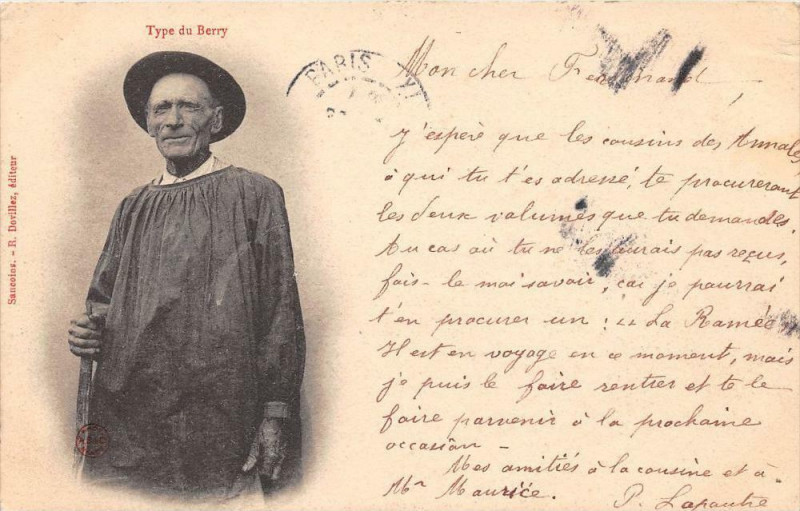 Type du Berry
PARIS
Sancoins. - R. Dovillez, éditeur
Mon cher Ferdinand,
J'espère que les cousins des Annales,
à qui tu t'es adressé, te procureront
les deux volumes que tu demandes.
Au cas où tu ne les aurais pas reçus,
fais-le moi savoir, car je pourrai
t'en procurer un : "La Ramée
Il est en voyage en ce moment, mais
je puis le faire rentrer et te le
faire parvenir à la prochaine
occasion -
Mes amitiés à la cousine et à
Mr Maurice.